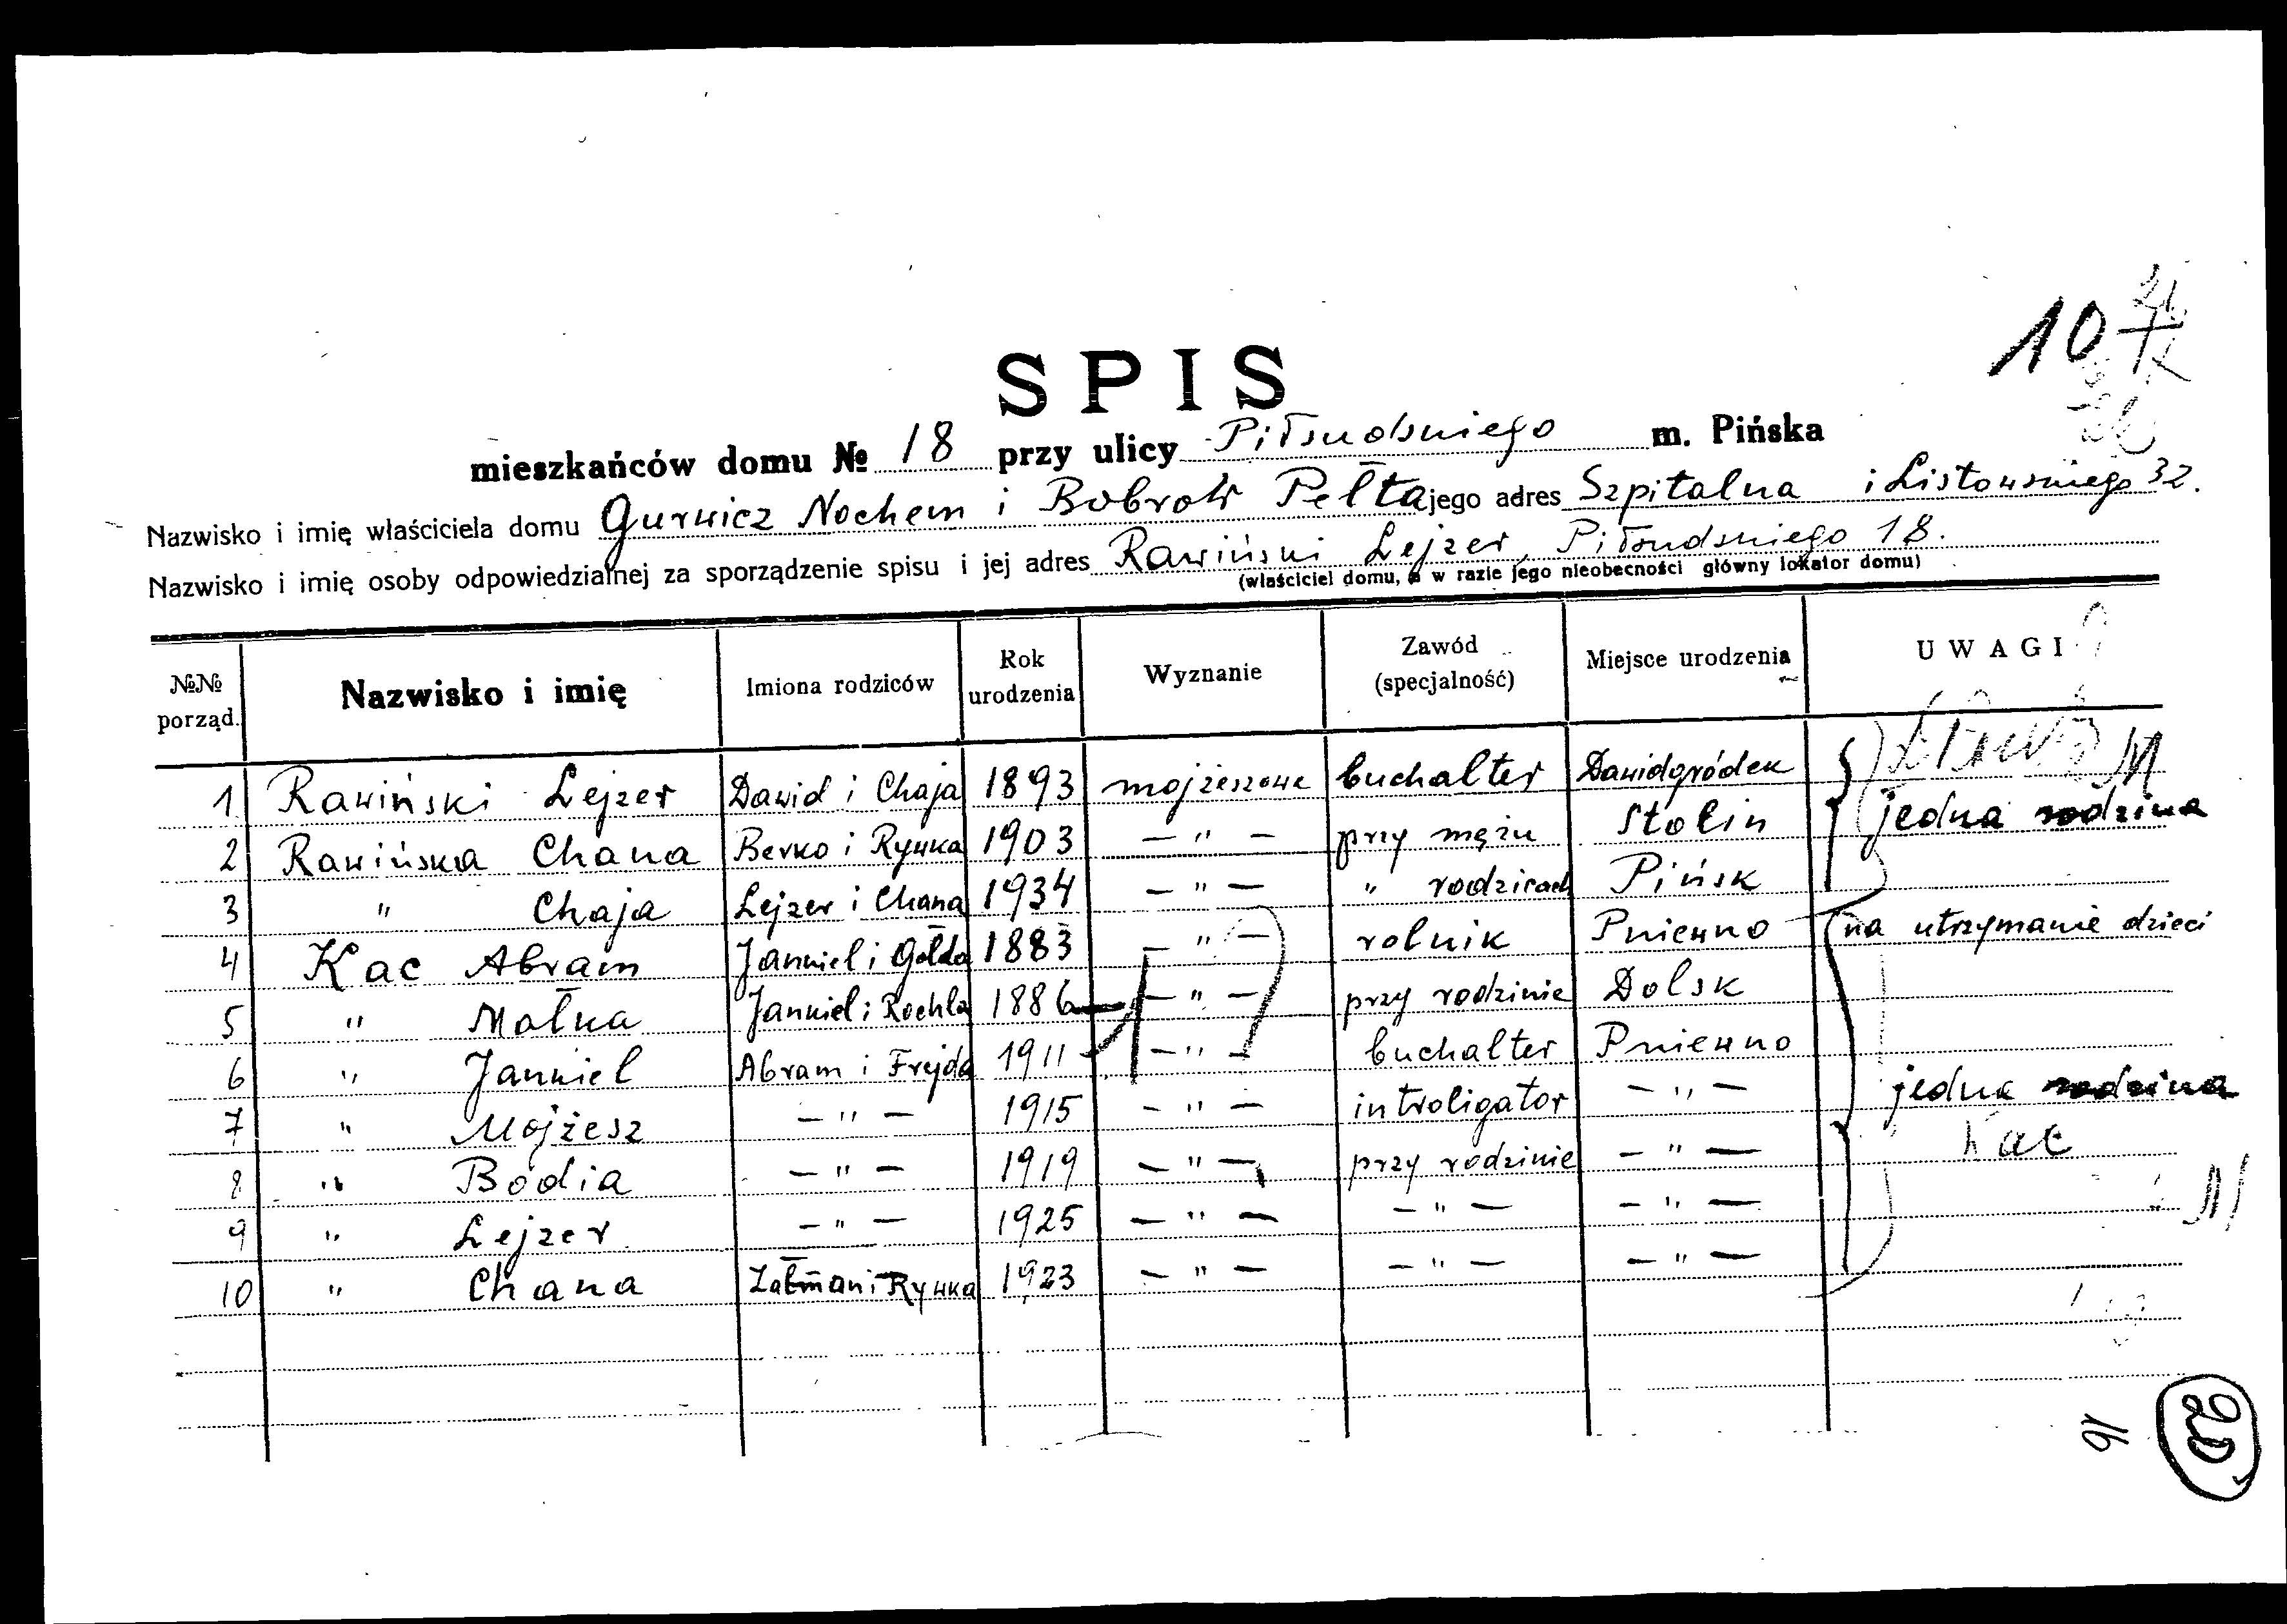 10
SPIS
mieszkańców domu № 18 przy ulicy Piłsudskiego m. Pińska
Nazwisko i imię właściciela domu Gurwicz Nochem i Bobrow Pełta jego adres Szpitalna i Listowskiego 32.
Nazwisko i imię osoby odpowiedzialnej za sporządzenie spisu i jej adres Rawiński Lejzer, Piłsudskiego 18.
(właściciel domu, a w razie jego nieobecności główny lokator domu)
№№ porząd. Nazwisko i imię Imiona rodziców Rok urodzenia Wyznanie Zawód (specjalność) Miejsce urodzenia UWAGI
1 Rawiński Lejzer Dawid i Chaja 1893 mojżeszowe buchalter Dawidgródek
2 Rawińska Chana Berko i Rywka 1903 — " — przy mężu Stolin jedna rodzina
3 " Chaja Lejzer i Chana 1934 — " — " rodzicach Pińsk
4 Kac Abram Jankiel i Gołda 1883 — " — rolnik Pniewno na utrzymanie dzieci
5 " Małka Jankiel i Rochla 1886 — " — przy rodzinie Dolsk
6 " Jankiel Abram i Frejda 1911 — " — buchalter Pniewno
7 " Mojżesz — " — 1915 — " — introligator — " — jedna rodzina
8 " Bodia — " — 1919 — " — przy rodzinie — " — Kac
9 " Lejzer — " — 1925 — " — — " — — " —
10 " Chana Załman i Rywka 1923 — " — — " — — " —